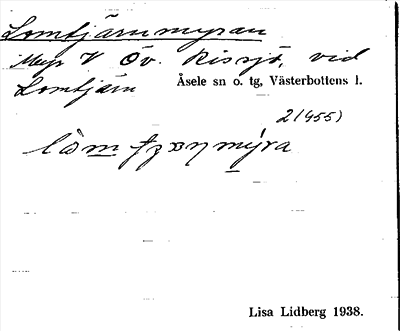 Lomtjärnmyran
Myr V Öv. Rissjö, vid
Lomtjärn
Åsele sn o. tg, Västerbottens l.
2(455)
Lisa Lidberg 1938.